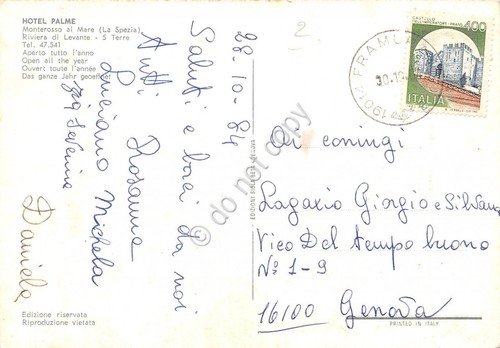 HOTEL PALME
Monterosso al Mare (La Spezia)
Riviera di Levante - 5 Terre
Tel. 47.541
Aperto tutto l'anno
Open all the year
Ouvert toute l'année
Das ganze Jahr geoeffnet
28-10-84
Saluti e baci da noi
tutti Rosanna
Luciano Michela
zia Severina
Daniela
Edizione riservata
Riproduzione vietata
do not copy
CASTELLO
400
ITALIA
2
Ai coningi
Lagaxio Giorgio e Silvana
Vico Del tempo buono
N° 1-9
16100 Genova
PRINTED IN ITALY